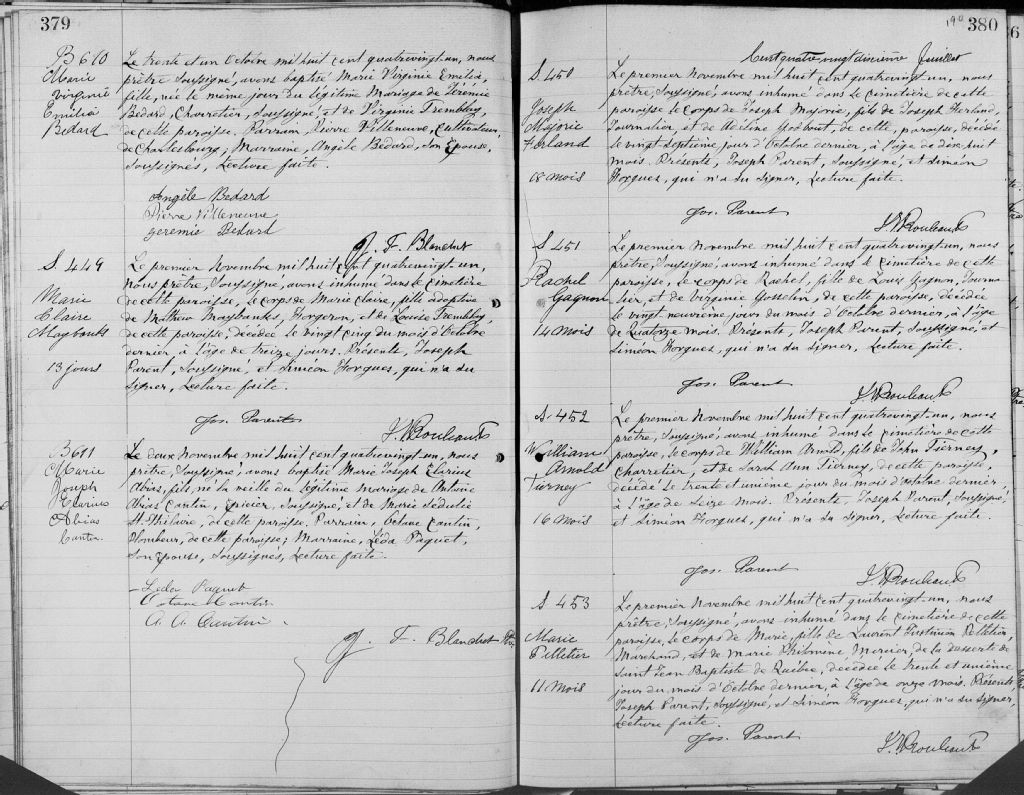 379
B 610
Marie
Virginie
Emilia
Bedard
Le trente et un Octobre mil huit cent quatrevingt-un, nous
prêtre Soussigné, avons baptisé Marie Virginie Emilia,
fille, née le même jour du légitime Mariage de Jérémie
Bedard, Charretier, Soussigné, et de Virginie Tremblay,
de cette paroisse. Parrain, Pierre Villeneuve, Cultivateur,
de Charlesbourg; Marraine, Angèle Bedard, Son Epouse,
Soussignés, Lecture faite.
Angèle Bedard
Pierre Villeneuve
Jeremie Bedard
F. Blanchet
S. 449
Marie
Claire
Maybanks
13 jours
Le premier Novembre mil huit cent quatrevingt-un,
Nous prêtre, Soussigné, avons inhumé dans le cimetière
de cette paroisse, le corps de Marie Claire, fille adoptive
de Mathew Maybanks, Forgeron, et de Louise Tremblay
de cette paroisse, décédée le vingt cinq du mois d'Octobre
dernier, à l'âge de treize jours. Présents, Joseph
Parent, Soussigné, et Simeon Gorgues, qui n'a su
signer, Lecture faite.
Jos. Parent
Rouleau
B 611
Marie
Joseph
Clarius
Abias
Cantin
Le deux Novembre mil huit cent quatrevingt-un, nous
prêtre, Soussigné, avons baptisé Marie Joseph Clarius
Abias, fils, né la veille du légitime mariage de Antoine
Abias Cantin, Epicier, Soussigné, et de Marie Sédulie
St-Hilaire, de cette paroisse. Parrain, Octave Cantin,
Plombeur, de cette paroisse; Marraine, Léda Paquet,
Son Epouse, Soussignés, Lecture faite.
Leda Paquet
Octave Cantin
A. A. Cantin
F. Blanchet
190
380
Cent quatre-vingt dixième feuillet
S. 450
Joseph
Majorie
Ferland
18 mois
Le premier Novembre mil huit cent quatrevingt-un, nous
prêtre, Soussigné, avons inhumé dans le cimetière de cette
paroisse, le corps de Joseph Majorie, fils de Joseph Ferland,
Journalier, et de Adéline Godbout, de cette, paroisse, décédé
le vingt septième jour d'Octobre dernier, à l'âge de dix huit
mois. Présents, Joseph Parent, Soussigné, et Siméon
Gorgues, qui n'a su signer, Lecture faite.
Jos. Parent
Rouleau
S. 451
Rachel
Gagnon
14 Mois
Le premier Novembre mil huit cent quatrevingt-un, nous
prêtre, Soussigné, avons inhumé dans le cimetière de cette
paroisse, le corps de Rachel, fille de Louis Gagnon, Journa
lier, et de Virginie Gosselin, de cette paroisse, décédée
le vingt neuvième jour du mois d'Octobre dernier, à l'âge
de Quatorze mois. Présents, Joseph Parent, Soussigné, et
Simeon Gorgues, qui n'a su signer, Lecture faite.
Jos. Parent
Rouleau
S. 452
William
Arnold
Tierney
16 Mois
Le premier Novembre mil huit cent quatrevingt-un, nous
prêtre, Soussigné, avons inhumé dans le cimetière de cette
paroisse, le corps de William Arnold, fils de John Tierney,
Charretier, et de Sarah Ann Tierney, de cette paroisse,
décédé le trente et unième jour du mois d'Octobre dernier,
à l'âge de Seize Mois. Présents, Joseph Parent, Soussigné,
et Simeon Gorgues, qui n'a su signer, Lecture faite.
Jos. Parent
Rouleau
S 453
Marie
Pelletier
11 Mois
Le premier Novembre mil huit cent quatrevingt-un, nous
prêtre, Soussigné, avons inhumé dans le cimetière de cette
paroisse, le corps de Marie, fille de Laurent Justinien Pelletier,
Marchand, et de Marie Philomène Mercier, de la desserte de
Saint Jean Baptiste de Québec, décédée le trente et unième
jour du mois d'Octobre dernier, à l'âge de onze mois. Présents
Joseph Parent, Soussigné, et Simeon Gorgues, qui n'a su signer,
Lecture faite.
Jos. Parent
Rouleau